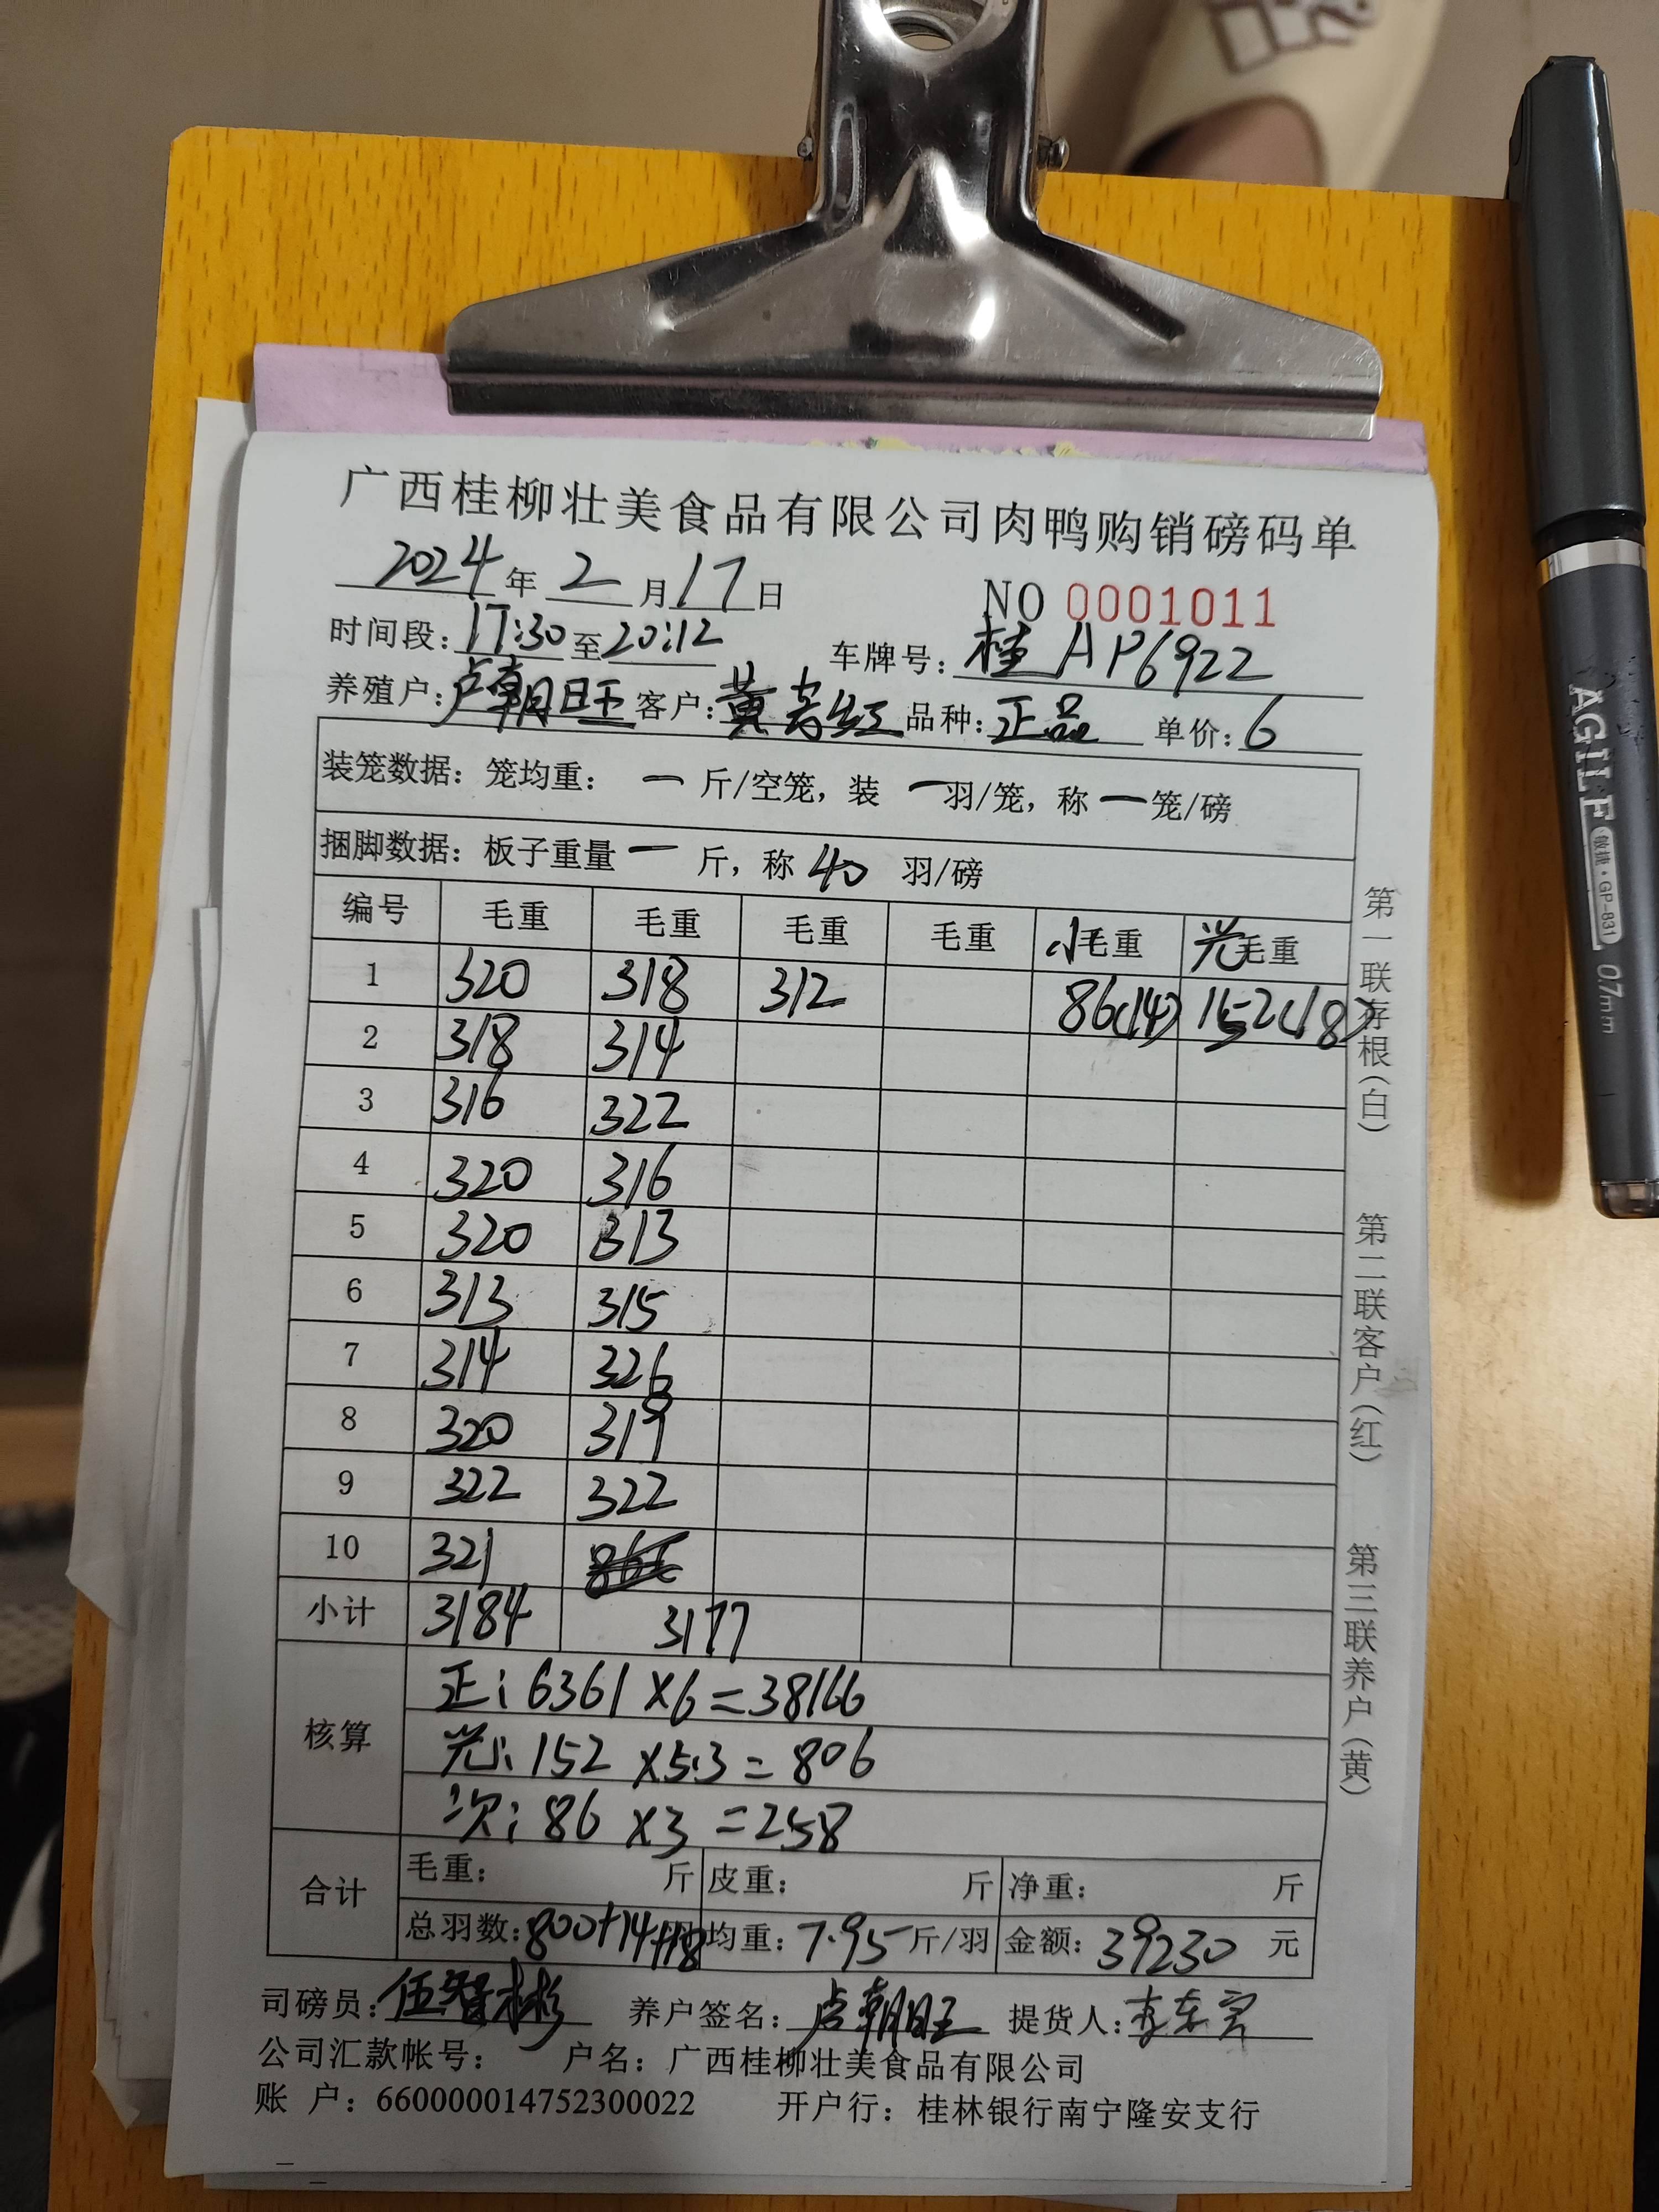 广西桂柳壮美食品有限公司肉鸭购销磅码单
2024年 2 月 17日
NO 0001011
时间段: 17:30 至 20:12 车牌号: 桂AP6922
养殖户: 卢朝旺 客户: 黄芳红 品种: 正品 单价: 6
装笼数据: 笼均重: 一 斤/空笼, 装 一 羽/笼, 称 一 笼/磅
捆脚数据: 板子重量 一 斤, 称 40 羽/磅
编号 毛重 毛重 毛重 毛重 小毛重 光毛重
1 320 318 312 86(14) 152(18)
2 318 314
3 316 322
4 320 316
5 320 313
6 313 315
7 314 326
8 320 319
9 322 322
10 321
小计 3184 3177
核算
正: 6361×6=38166
光: 152×5.3=806
次: 86×3=258
合计 毛重: 斤 皮重: 斤 净重: 斤
总羽数: 800+14+18羽 均重: 7.95斤/羽 金额: 39230 元
司磅员: 伍智彬 养户签名: 卢朝旺 提货人: 李东
公司汇款帐号: 户名: 广西桂柳壮美食品有限公司
账 户: 660000014752300022 开户行: 桂林银行南宁隆安支行
第一联存根(白) 第二联客户(红) 第三联养户(黄)
AGILE 敏捷·GP-831 0.7mm